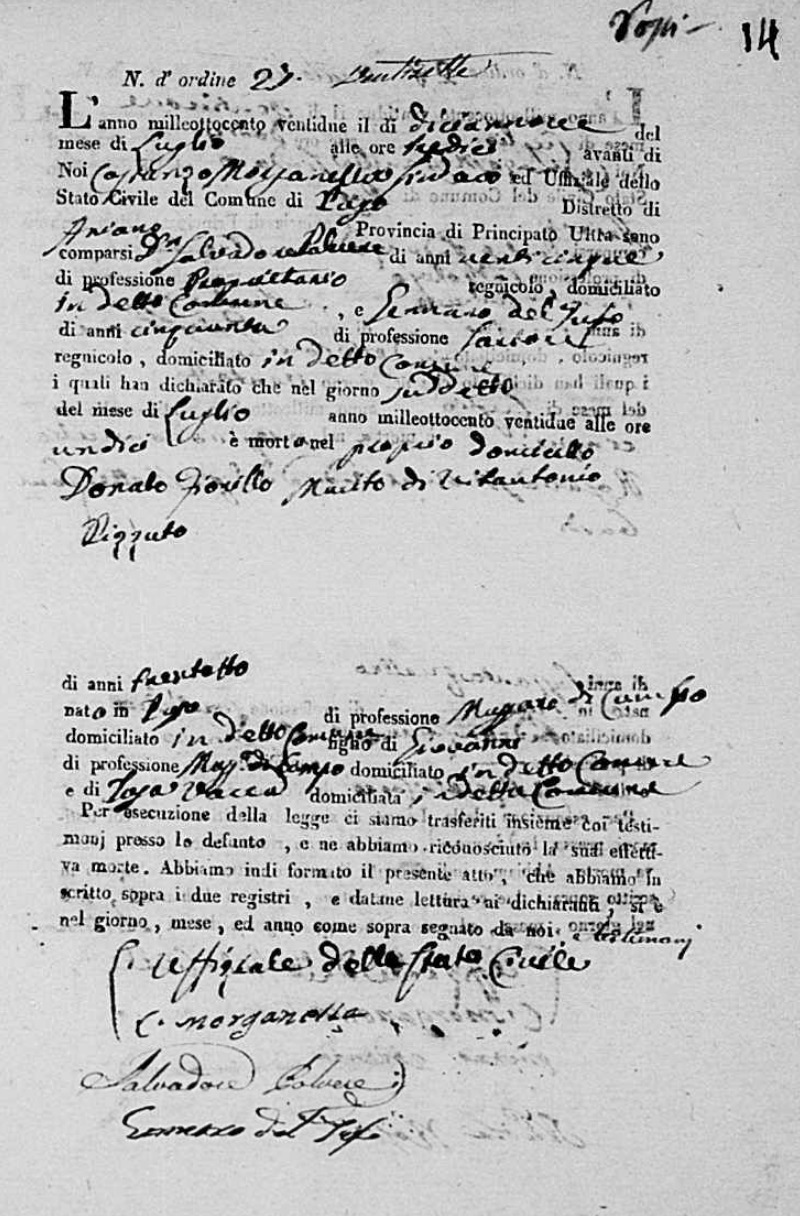 14
N. d'ordine 27. ventisette
L'anno milleottocento ventidue il di diciannove del
mese di Luglio alle ore tredici avanti di
Noi Costanzo Morganella Sindaco ed Uffiziale dello
Stato Civile del Comune di Pago Distretto di
Ariano Provincia di Principato Ultra sono
comparsi Dn Salvadore Polvere di anni venticinque
di professione Proprietario regnicolo, domiciliato
in detto Comune, e Gennaro del Tufo
di anni cinquanta di professione
regnicolo, domiciliato in detto Comune
i quali han dichiarato che nel giorno suddetto
del mese di Luglio anno milleottocento ventidue alle ore
undici è morto nel proprio domicilio
Donato Fiorillo Marito di Vitantonio
Pizzuto
di anni trentotto
nato in Pago di professione di Campo
domiciliato in detto Comune figlio di Giovanni
di professione di Campo domiciliato in detto Comune
e di Vacca domiciliata in detto Comune
Per esecuzione della legge ci siamo trasferiti insieme coi testi-
monj presso lo defunto, e ne abbiamo riconosciuto la sua effetti-
va morte. Abbiamo indi formato il presente atto, che abbiamo in
scritto sopra i due registri, e datane lettura ai dichiaranti, si è
nel giorno, mese, ed anno come sopra segnato da noi e testimonj
L'Uffiziale dello Stato Civile
C. Morganella
Salvadore Polvere
Gennaro del Tufo